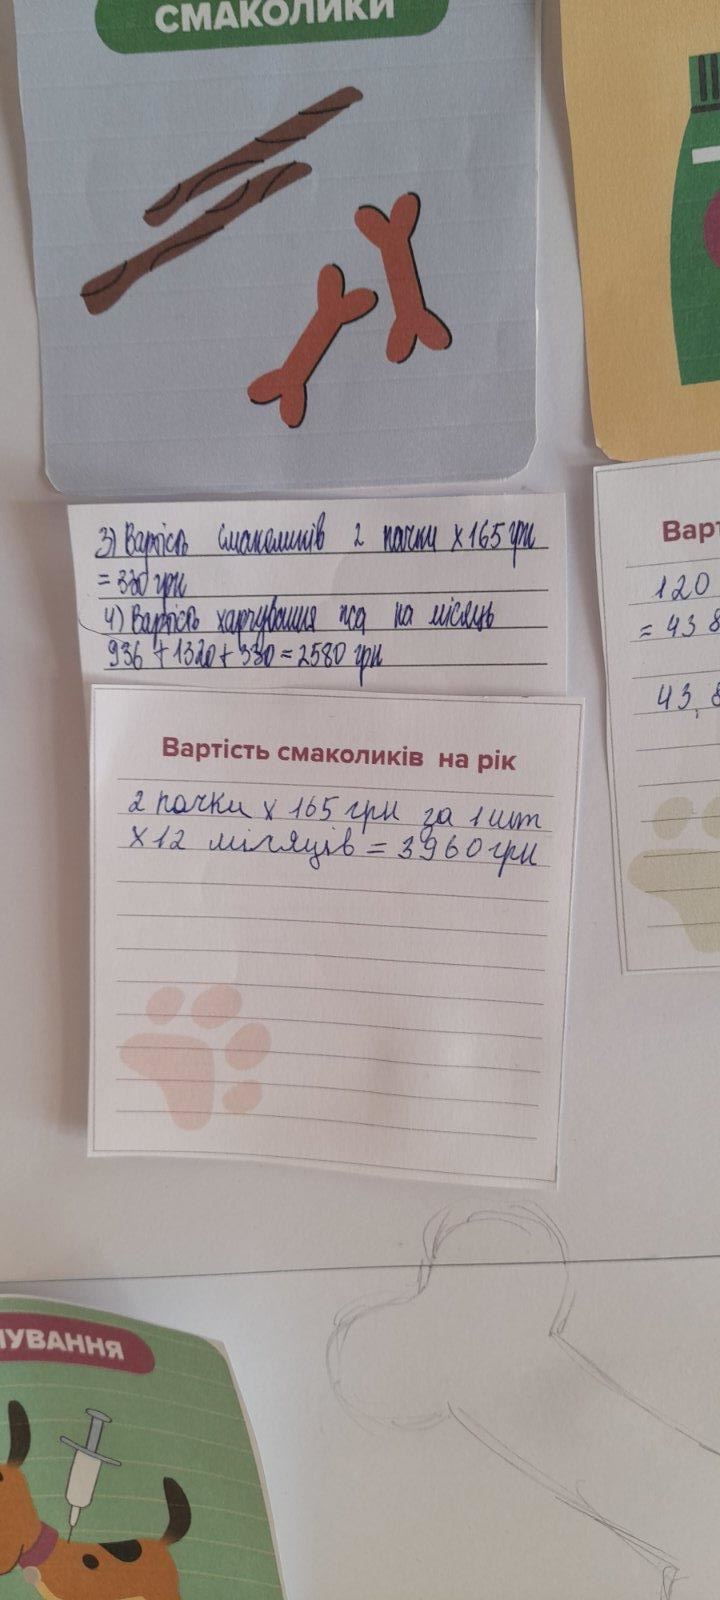 СМАКОЛИКИ
3) Вартість смаколиків 2 пачки х 165 грн
= 330 грн
4) Вартість харчування пса на місяць
936 + 1320 + 330 = 2580 грн
Вартість смаколиків на рік
2 пачки х 165 грн за 1 шт
х 12 місяців = 3960 грн
Варт
120
= 43 8
43, 8
УВАННЯ